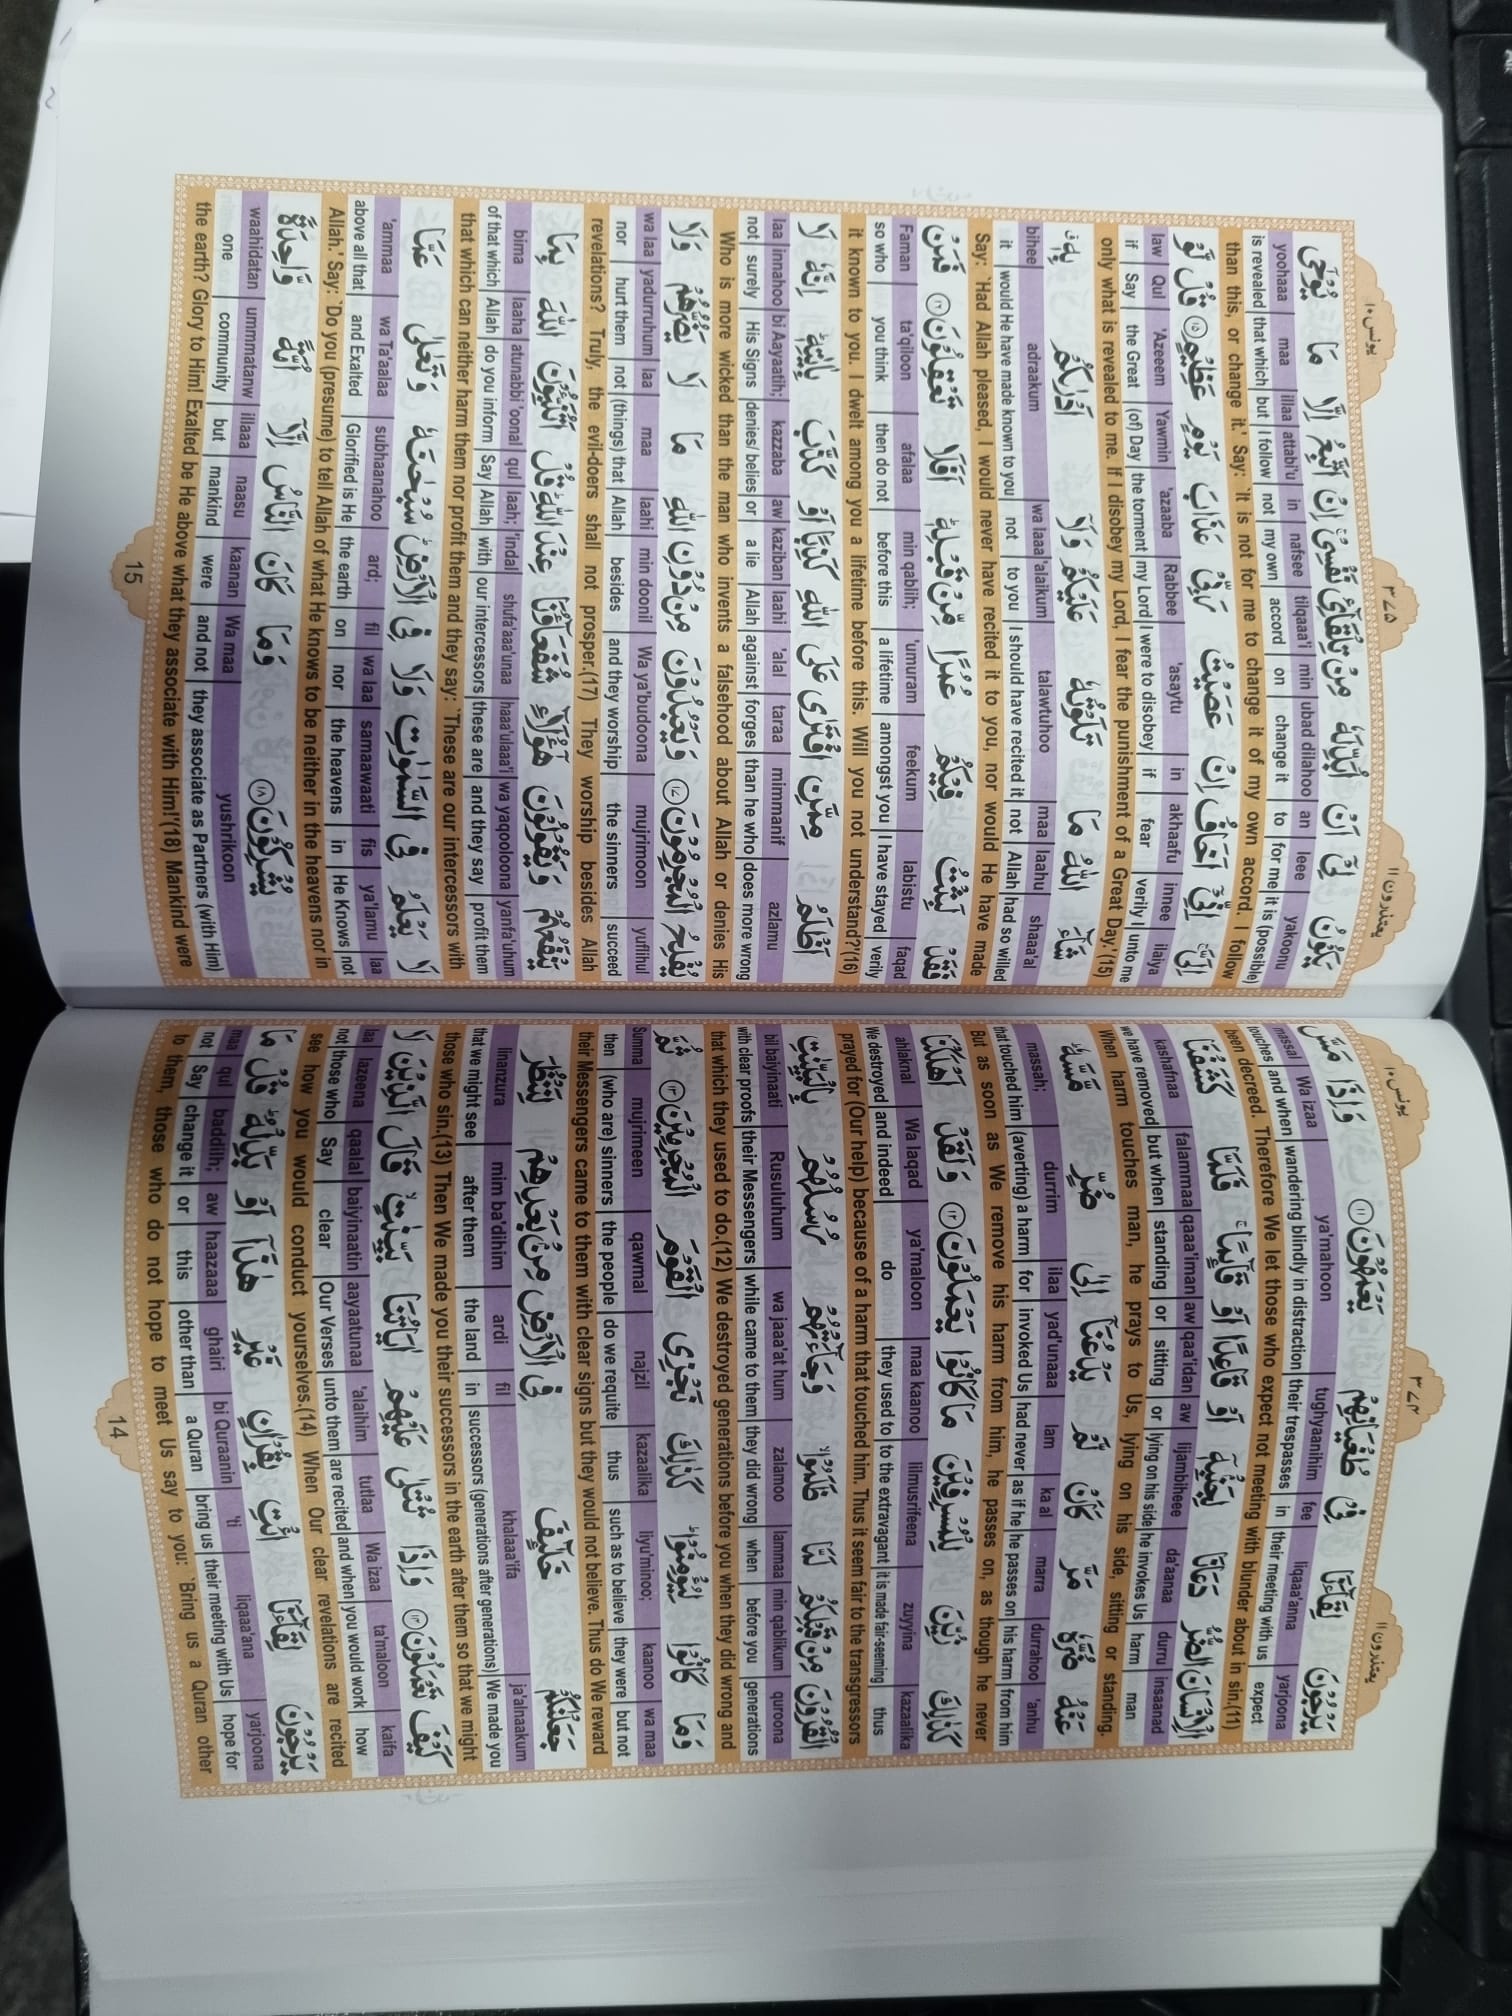 يونس ١٠ ٣٧٤ يعتذرون ١١
يَرْجُوْنَ لِقَآءَنَا فِىْ طُغْيَانِهِمْ يَعْمَهُوْنَ ﴿١١﴾ وَاِذَا مَسَّ
yarjoona liqaaa'anna fee tughyaanihim ya'mahoon Wa izaa massal
expect their meeting with us in their trespasses wandering blindly in distraction and when touches
been decreed. Therefore We let those who expect not meeting with blunder about in sin.(11)
الْاِنْسَانَ الضُّرُّ دَعَانَا لِجَنْۢبِهٖٓ اَوْ قَاعِدًا اَوْ قَآئِمًا ۚ فَلَمَّا كَشَفْنَا
insaanad durru da'aanaa lijambiheee aw qaa'idan aw qaaa'iman falammaa kashafnaa
man harm he invokes Us lying on his side or sitting or standing but when we have removed
When harm touches man, he prays to Us, lying on his side, sitting or standing.
عَنْهُ ضُرَّهٗ مَرَّ كَاَنْ لَّمْ يَدْعُنَآ اِلٰى ضُرٍّ مَّسَّهٗ ؕ
'anhu durrahoo marra ka al lam yad'unaaa ilaa durrim massah;
from him his harm he passes on as if he had never invoked Us for (averting) a harm that touched him
But as soon as We remove his harm from him, he passes on, as though he never
كَذٰلِكَ زُيِّنَ لِلْمُسْرِفِيْنَ مَا كَانُوْا يَعْمَلُوْنَ ﴿١٢﴾ وَلَقَدْ اَهْلَكْنَا
kazaalika zuyyina lilmusrifeena maa kaanoo ya'maloon Wa laqad ahlaknal
thus it is made fair-seeming to the extravagant they used to do and indeed We destroyed
prayed for (Our help) because of a harm that touched him. Thus it seem fair to the transgressors
الْقُرُوْنَ مِنْ قَبْلِكُمْ لَمَّا ظَلَمُوْا ۙ وَجَآءَتْهُمْ رُسُلُهُمْ بِالْبَيِّنٰتِ
quroona min qablikum lammaa zalamoo wa jaaa'at hum Rusuluhum bil baiyinaati
generations before you when they did wrong while came to them their Messengers with clear proofs
that which they used to do.(12) We destroyed generations before you when they did wrong and
وَمَا كَانُوْا لِيُؤْمِنُوْا ؕ كَذٰلِكَ نَجْزِى الْقَوْمَ الْمُجْرِمِيْنَ ﴿١٣﴾ ثُمَّ
wa maa kaanoo liyu'minoo; kazaalika najzil qawmal mujrimeen Summa
but not they were such as to believe thus do we requite the people (who are) sinners then
their Messengers came to them with clear signs but they would not believe. Thus do We reward
جَعَلْنٰكُمْ خَلٰٓئِفَ فِى الْاَرْضِ مِنْۢ بَعْدِهِمْ لِنَنْظُرَ
ja'alnaakum khalaaa'ifa fil ardi mim ba'dihim linanzura
We made you successors (generations after generations) in the land after them that we might see
those who sin.(13) Then We made you their successors in the earth after them so that we might
كَيْفَ تَعْمَلُوْنَ ﴿١٤﴾ وَاِذَا تُتْلٰى عَلَيْهِمْ اٰيَاتُنَا بَيِّنٰتٍ ۙ قَالَ الَّذِيْنَ لَا
kaifa ta'maloon Wa izaa tutlaa 'alaihim aayaatunaa baiyinaatin qaalal lazeena laa
how you would work and when are recited unto them Our Verses clear Say those who not
see how you would conduct yourselves.(14) When Our clear revelations are recited
يَرْجُوْنَ لِقَآءَنَا ائْتِ بِقُرْاٰنٍ غَيْرِ هٰذَآ اَوْ بَدِّلْهُ ؕ قُلْ مَا
yarjoona liqaaa'ana 'ti bi Quraanin ghairi haazaaa aw baddilh; qul maa
hope for their meeting with Us bring us a Quran other than this or change it Say not
to them, those who do not hope to meet Us say to you: `Bring us a Quran other
14
يونس ١٠ ٣٧٥ يعتذرون ١١
يَكُوْنُ لِىْٓ اَنْ اُبَدِّلَهٗ مِنْ تِلْقَآئِ نَفْسِىْ ۚ اِنْ اَتَّبِعُ اِلَّا مَا يُوْحٰٓى
yakoonu leee an ubad dilahoo min tilqaaa'i nafsee in attabi'u illaa maa yoohaaa
it is (possible) for me to change it on accord my own not I follow but that which is revealed
than this, or change it.' Say: `It is not for me to change it of my own accord. I follow
اِلَىَّ ۚ اِنِّىْٓ اَخَافُ اِنْ عَصَيْتُ رَبِّىْ عَذَابَ يَوْمٍ عَظِيْمٍ ﴿١٥﴾ قُلْ لَّوْ
ilaiya innee akhaafu in 'asaytu Rabbee 'azaaba Yawmin 'Azeem Qul law
unto me verily I fear if I were to disobey my Lord the torment (of) Day the Great Say if
only what is revealed to me. If I disobey my Lord, I fear the punishment of a Great Day.'(15)
شَآءَ اللّٰهُ مَا تَلَوْتُهٗ عَلَيْكُمْ وَلَآ اَدْرٰىكُمْ بِهٖ ۖ
shaaa'al laahu maa talawtuhoo 'alaikum wa laaa adraakum bihee
had so willed Allah not I should have recited it to you not would He have made known to you it
Say: 'Had Allah pleased, I would never have recited it to you, nor would He have made
فَقَدْ لَبِثْتُ فِيْكُمْ عُمُرًا مِّنْ قَبْلِهٖ ؕ اَفَلَا تَعْقِلُوْنَ ﴿١٦﴾ فَمَنْ
faqad labistu feekum 'umuram min qablih; afalaa ta'qiloon Faman
verily I have stayed amongst you a lifetime before this then do not you think so who
it known to you. I dwelt among you a lifetime before this. Will you not understand?'(16)
اَظْلَمُ مِمَّنِ افْتَرٰى عَلَى اللّٰهِ كَذِبًا اَوْ كَذَّبَ بِاٰيٰتِهٖ ؕ اِنَّهٗ لَا
azlamu mimmanif taraa 'alal laahi kaziban aw kazzaba bi Aayaatih; innahoo laa
does more wrong than he who forges against Allah a lie or denies/ belies His Signs surely not
Who is more wicked than the man who invents a falsehood about Allah or denies His
يُفْلِحُ الْمُجْرِمُوْنَ ﴿١٧﴾ وَيَعْبُدُوْنَ مِنْ دُوْنِ اللّٰهِ مَا لَا يَضُرُّهُمْ وَلَا
yuflihul mujrimoon Wa ya'budoona min doonil laahi maa laa yadurruhum wa laa
succeed the sinners and they worship besides Allah (things) that not hurt them nor
revelations? Truly, the evil-doers shall not prosper.(17) They worship besides Allah
يَنْفَعُهُمْ وَيَقُوْلُوْنَ هٰٓؤُلَآءِ شُفَعَآؤُنَا عِنْدَ اللّٰهِ ؕ قُلْ اَتُنَبِّئُوْنَ اللّٰهَ بِمَا
yanfa'uhum wa yaqooloona haaa'ulaaa'i shufa'aaa'unaa 'indal laah; qul atunabbi'oonal laaha bima
profit them and they say these are our intercessors with Allah Say do you inform Allah of that which
that which can neither harm them nor profit them and they say: `These are our intercessors with
لَا يَعْلَمُ فِى السَّمٰوٰتِ وَلَا فِى الْاَرْضِ ؕ سُبْحٰنَهٗ وَتَعٰلٰى عَمَّا
laa ya'lamu fis samaawaati wa laa fil ard; subhaanahoo wa Ta'aalaa 'ammaa
not He Knows in the heavens nor on the earth Glorified is He and Exalted above all that
Allah.' Say: `Do you (presume) to tell Allah of what He knows to be neither in the heavens nor in
يُشْرِكُوْنَ ﴿١٨﴾ وَمَا كَانَ النَّاسُ اِلَّآ اُمَّةً وَّاحِدَةً
yushrikoon Wa maa kaanan naasu illaaa ummatanw waahidatan
they associate as Partners (with Him) and not were mankind but community one
the earth? Glory to Him! Exalted be He above what they associate with Him!'(18) Mankind were
15